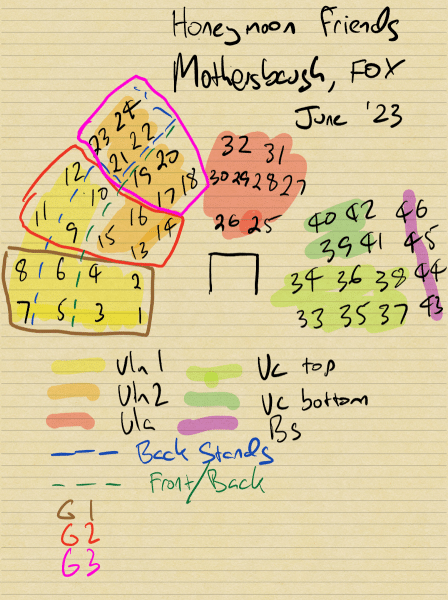 Honeymoon Friends
Mothersbaugh, FOX
June '23
24
23 22
21 20
12 19 18
10 17
11 16 14
9 15 13
8 6 4 2
7 5 3 1
32 31
30 29 28 27
26 25
40 42 46
39 41 45
34 36 38 44
33 35 37 43
Vln 1 Vc top
Vln 2 Vc bottom
Vla Bs
Back Stands
Front/Back
G1
G2
G3